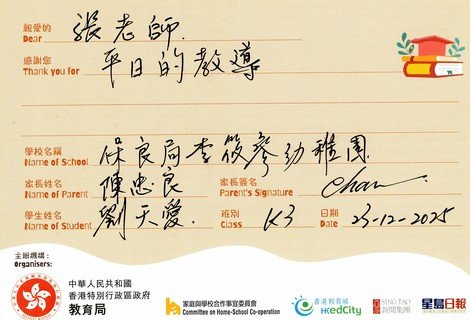 親愛的
Dear 張老師.
感謝您
Thank you for 平日的教導
學校名稱
Name of School 保良局李筱參幼稚園
家長姓名 家長簽名
Name of Parent 陳忠良 Parent's Signature Chan
學生姓名 班別 日期
Name of Student 劉天愛. Class K3 Date 23-12-2025
主辦機構:
Organisers:
中華人民共和國
香港特別行政區政府
教育局
家庭與學校合作事宜委員會
Committee on Home-School Co-operation
香港教育城
HKedCity
SING TAO
新聞集團
星島日報